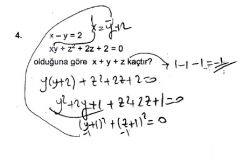 x = y+2
4. x − y = 2
xy + z² + 2z + 2 = 0
olduğuna göre x + y + z kaçtır? → 1-1-1=-1
y(y+2) + z²+2z+2=0
y²+2y+1 + z²+2z+1=0
(y+1)² + (z+1)² = 0
-1 -1